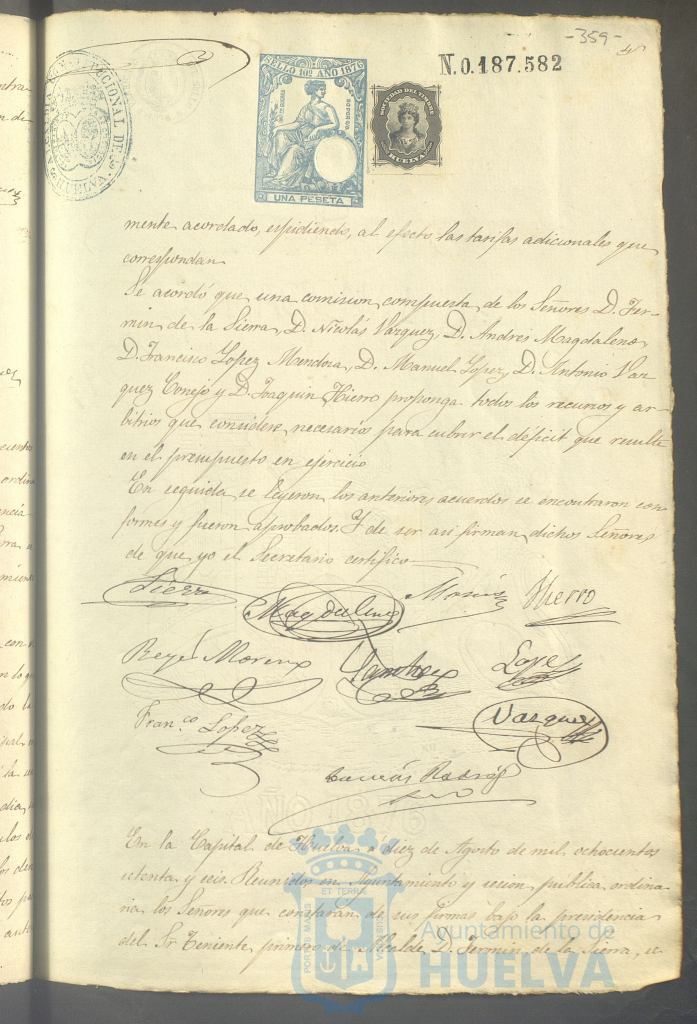 -359-
N.0.187.582
SELLO 10º AÑO 1876
UNA PESETA
SOCIEDAD DEL TIMBRE
HUELVA
mente acordado, espidiendo, al efecto las tarifas adicionales que
correspondan
Se acordó que una comision compuesta de los Señores D. Fer-
min de la Sierra, D. Nicolás Vazquez, D. Andres Magdalena,
D. Francisco Lopez Mendoza, D. Manuel Lopez, D. Antonio Vaz
quez Conejo y D. Joaquin Hierro proponga todos los recursos y ar-
bitrios que considere necesarios para cubrir el déficit que resulte
en el presupuesto en ejercicio
En seguida se leyeron los anteriores acuerdos se encontraron con
formes y fueron aprobados. Y de ser asi firman dichos Señores
de que yo el Secretario certifico
Sierra
Magdalena
Hierro
Reyes Moreno
Sanchez
Lopez
Franco Lopez
Vazquez
AÑO 1876
En la Capital de Huelva á diez de Agosto de mil ochocientos
setenta y seis. Reunidos en Ayuntamiento y sesion publica ordina
ria los Señores que constaran de sus firmas bajo la presidencia
del Sr Teniente primero de Alcalde D. Fermin de la Sierra, se
Ayuntamiento de
HUELVA